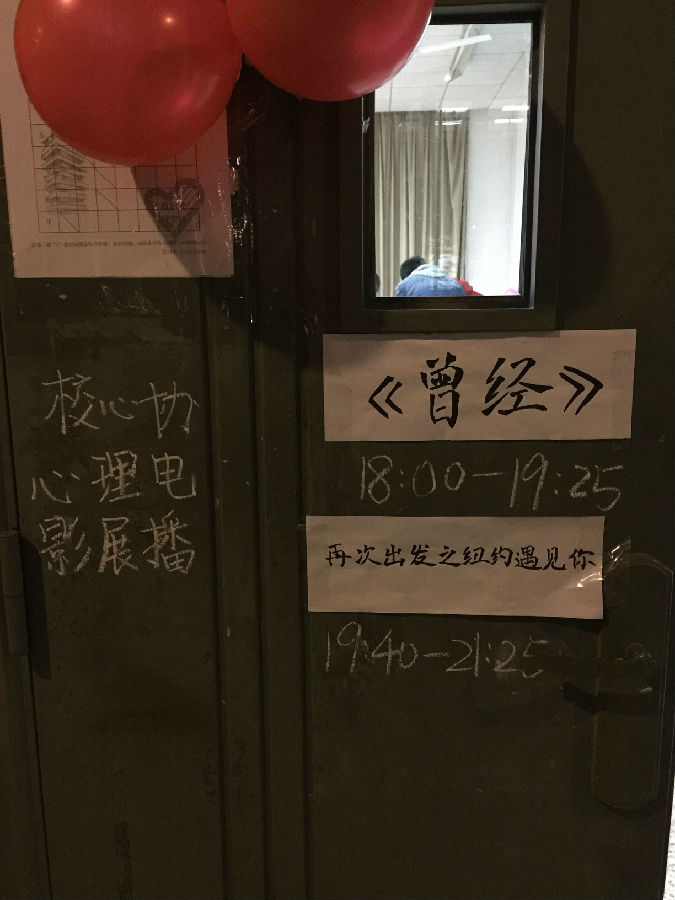 核心协
心理电
影展播
《曾经》
18:00-19:25
再次出发之纽约遇见你
19:40-21:25